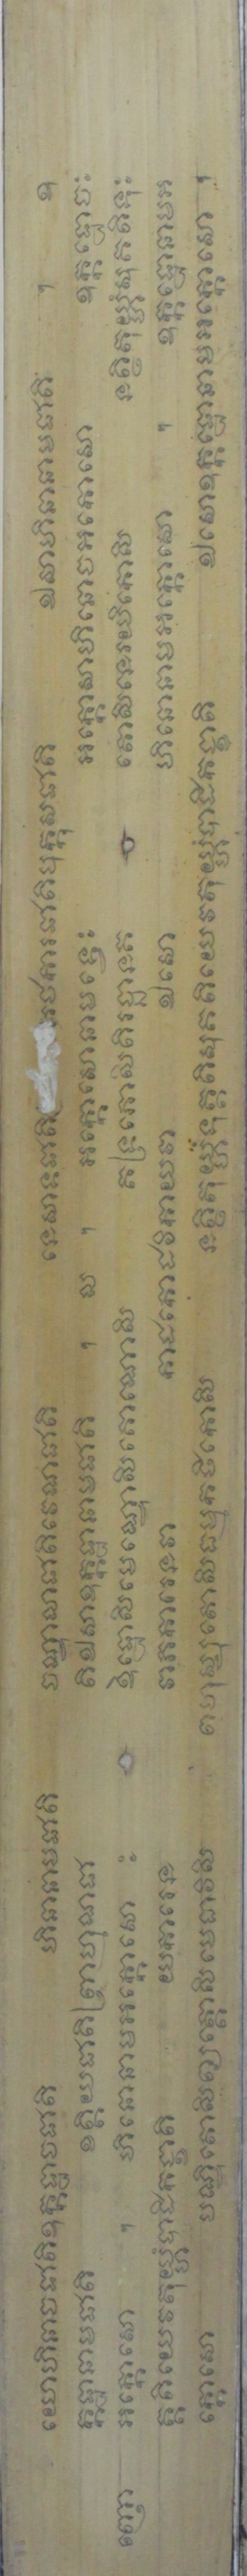 យោហិនាចជាតិឧក្កដ្ឋាចជាតិ ហិនានាមជាតិ ចណ្ឌាលជាតិវេណជាតិ នេសាទជាតិ រថការជាតិបុក្កុសជាតិ ឯសាហិនានាមជាតិ ។ ឧ
ក្កដ្ឋានាមជាតិ ខត្តិយជាតិព្រាហ្មណជា តិឯសាឧក្កដ្ឋានាមជាតិ ។ ល ។ អក្កោសោនាមទ្វេះ អក្កោសាហិនោចអកោសោ ឧក្កដ្ឋោចះ
ញោ អក្កោសោ ។ ហិនោនាមអក្កោសោ ះ ឱដ្ឋោសិមេណ្ឌោសិគោណោសិ គទ្រភោសិតិរច្ឆានគ តោសិនេរយិកោសិ នត្ថិតុយ្ហំសុគតិទុះ
គ្គតិយេវតុយ្ហំបាដិកង្ខាតិ យការេន វាភការេនវា កាដកោដចិកាយវា ឯសោ ហិនោនាមអក្កោសោ ។ ឧក្កដ្ឋោនាមអ
ក្កោសោ បណ្ឌិតោសិព្យត្តោសិមេធាវិសិ ពហុស្សុតោសិធម្មកថិកោសិ នត្ថិតុយ្ហំទុគ្គតិសុគតិយេវតុយ្ហំបាដិកង្ខាតិ ឯសោឧក្កដ្ឋោនាមអក្កោសោ ។